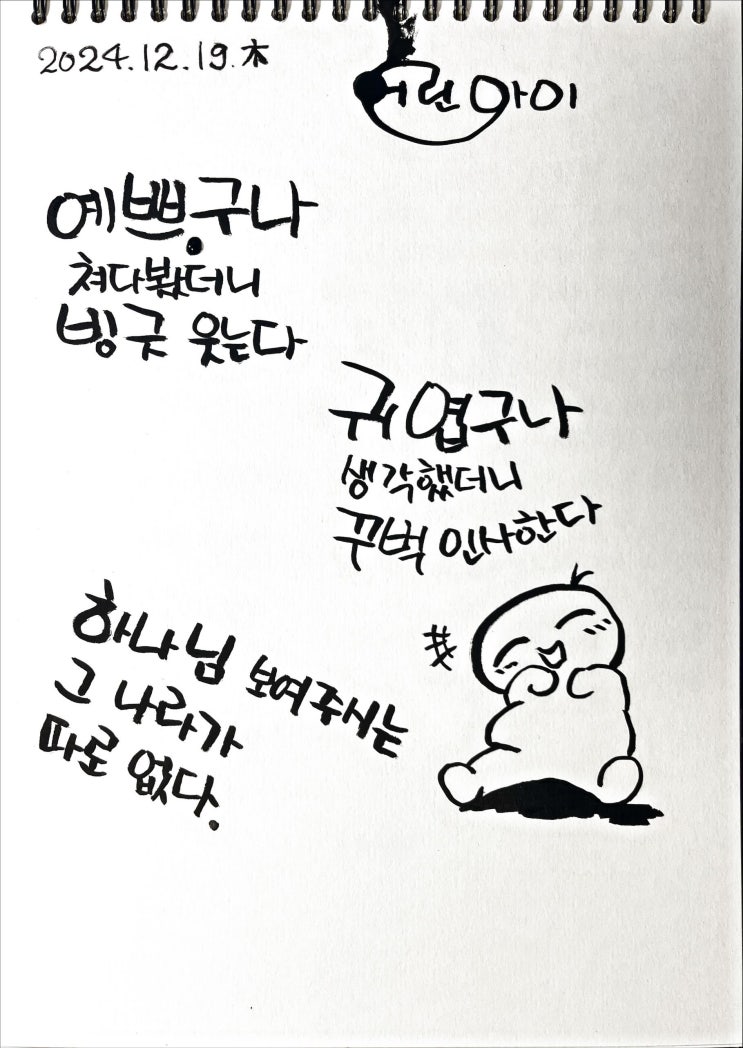 2024.12.19.木
어린아이
예쁘구나
쳐다봤더니
빙긋 웃는다
귀엽구나
생각했더니
꾸벅 인사한다
하나님 보여주시는
그 나라가
따로 없다.